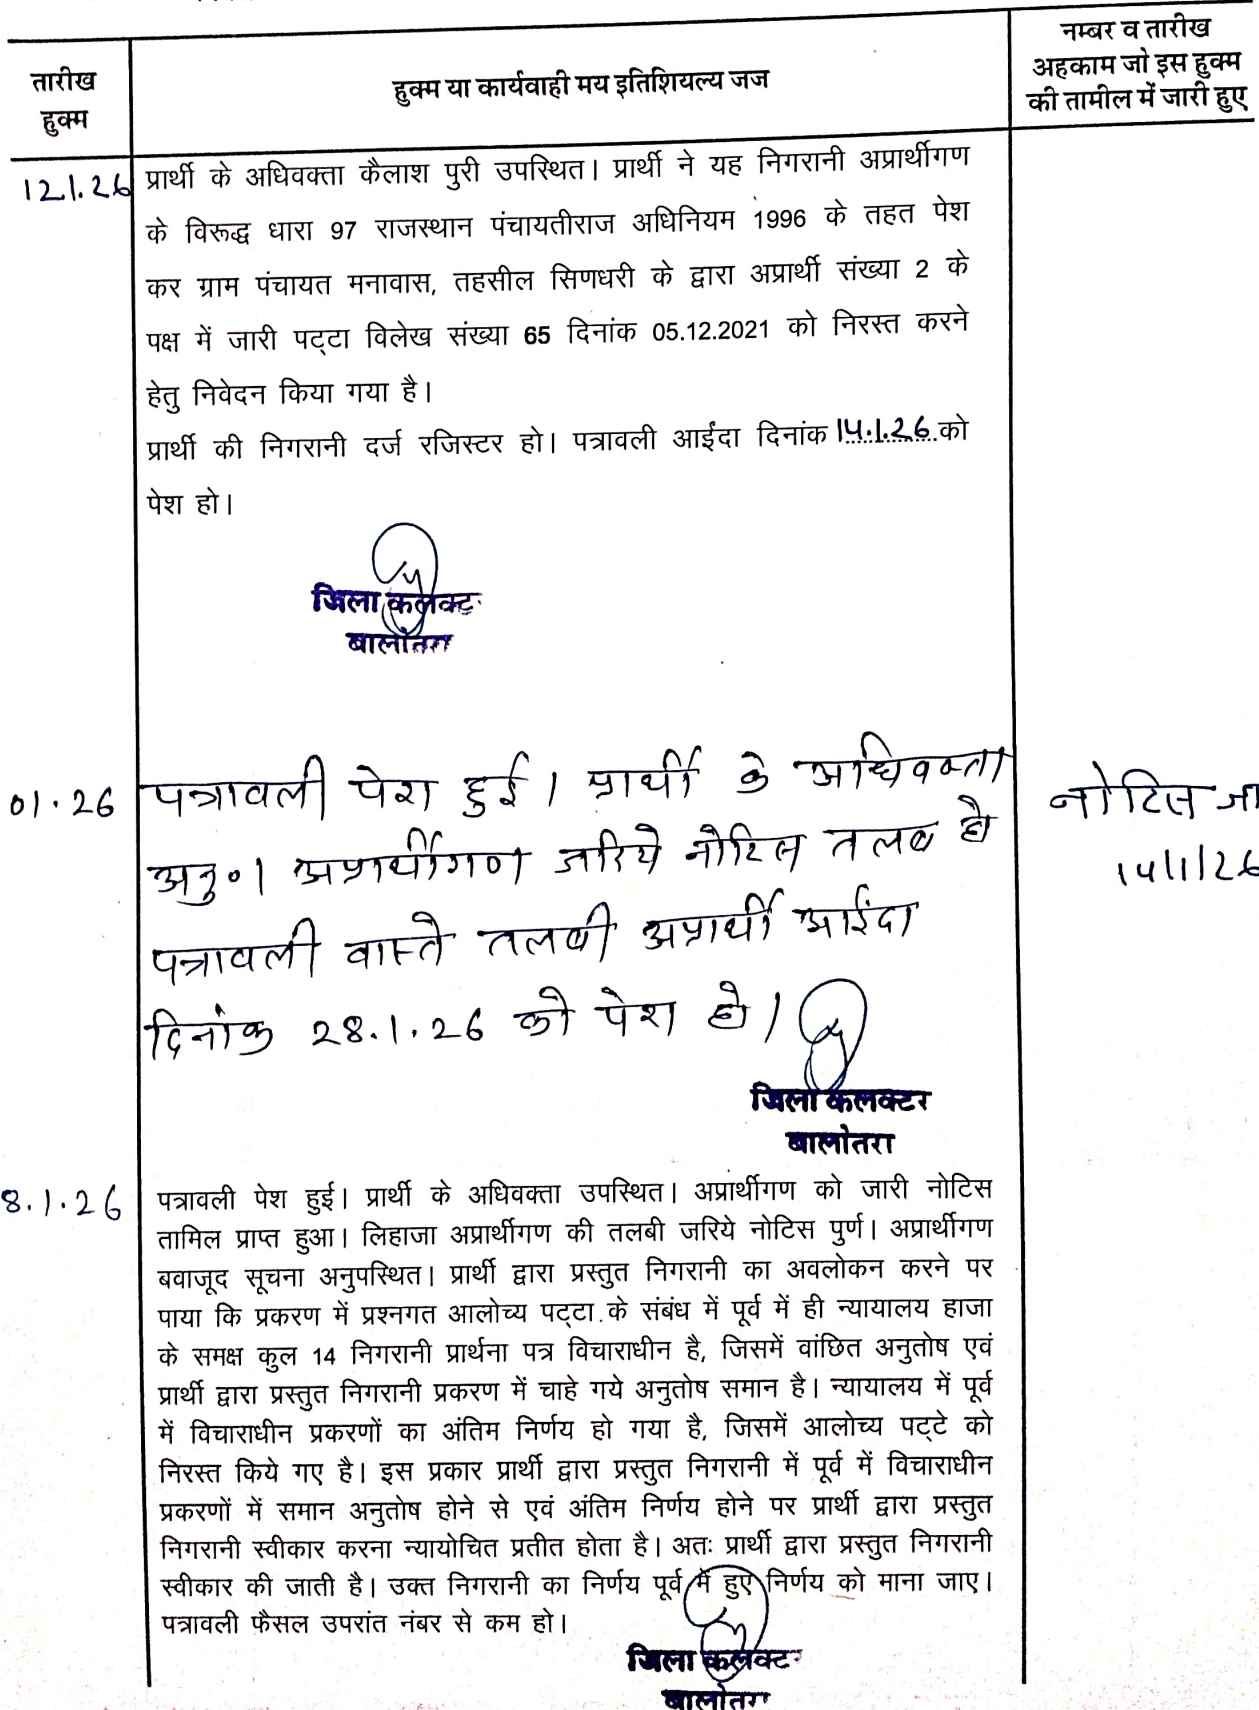 तारीख
हुक्म
हुक्म या कार्यवाही मय इतिशियल्य जज
नम्बर व तारीख
अहकाम जो इस हुक्म
की तामील में जारी हुए
12.1.26
प्रार्थी के अधिवक्ता कैलाश पुरी उपस्थित। प्रार्थी ने यह निगरानी अप्रार्थीगण
के विरूद्ध धारा 97 राजस्थान पंचायतीराज अधिनियम 1996 के तहत पेश
कर ग्राम पंचायत मनावास, तहसील सिणधरी के द्वारा अप्रार्थी संख्या 2 के
पक्ष में जारी पट्टा विलेख संख्या 65 दिनांक 05.12.2021 को निरस्त करने
हेतु निवेदन किया गया है।
प्रार्थी की निगरानी दर्ज रजिस्टर हो। पत्रावली आईंदा दिनांक 14.1.26 को
पेश हो।
जिला कलेक्ट
बालोतरा
01.26
पत्रावली पेश हुई। प्रार्थी के अधिवक्ता
अनु०। अप्रार्थीगण जरिये नोटिस तलब हो
पत्रावली वास्ते तलबी अप्रार्थी आईंदा
दिनांक 28.1.26 को पेश हो।
नोटिस जा
14/1/26
जिला कलक्टर
बालोतरा
8.1.26
पत्रावली पेश हुई। प्रार्थी के अधिवक्ता उपस्थित। अप्रार्थीगण को जारी नोटिस
तामिल प्राप्त हुआ। लिहाजा अप्रार्थीगण की तलबी जरिये नोटिस पुर्ण। अप्रार्थीगण
बवाजूद सूचना अनुपस्थित। प्रार्थी द्वारा प्रस्तुत निगरानी का अवलोकन करने पर
पाया कि प्रकरण में प्रश्नगत आलोच्य पट्टा के संबंध में पूर्व में ही न्यायालय हाजा
के समक्ष कुल 14 निगरानी प्रार्थना पत्र विचाराधीन है, जिसमें वांछित अनुतोष एवं
प्रार्थी द्वारा प्रस्तुत निगरानी प्रकरण में चाहे गये अनुतोष समान है। न्यायालय में पूर्व
में विचाराधीन प्रकरणों का अंतिम निर्णय हो गया है, जिसमें आलोच्य पट्टे को
निरस्त किये गए है। इस प्रकार प्रार्थी द्वारा प्रस्तुत निगरानी में पूर्व में विचाराधीन
प्रकरणों में समान अनुतोष होने से एवं अंतिम निर्णय होने पर प्रार्थी द्वारा प्रस्तुत
निगरानी स्वीकार करना न्यायोचित प्रतीत होता है। अतः प्रार्थी द्वारा प्रस्तुत निगरानी
स्वीकार की जाती है। उक्त निगरानी का निर्णय पूर्व में हुए निर्णय को माना जाए।
पत्रावली फैसल उपरांत नंबर से कम हो।
जिला कलक्ट
बालोतरा